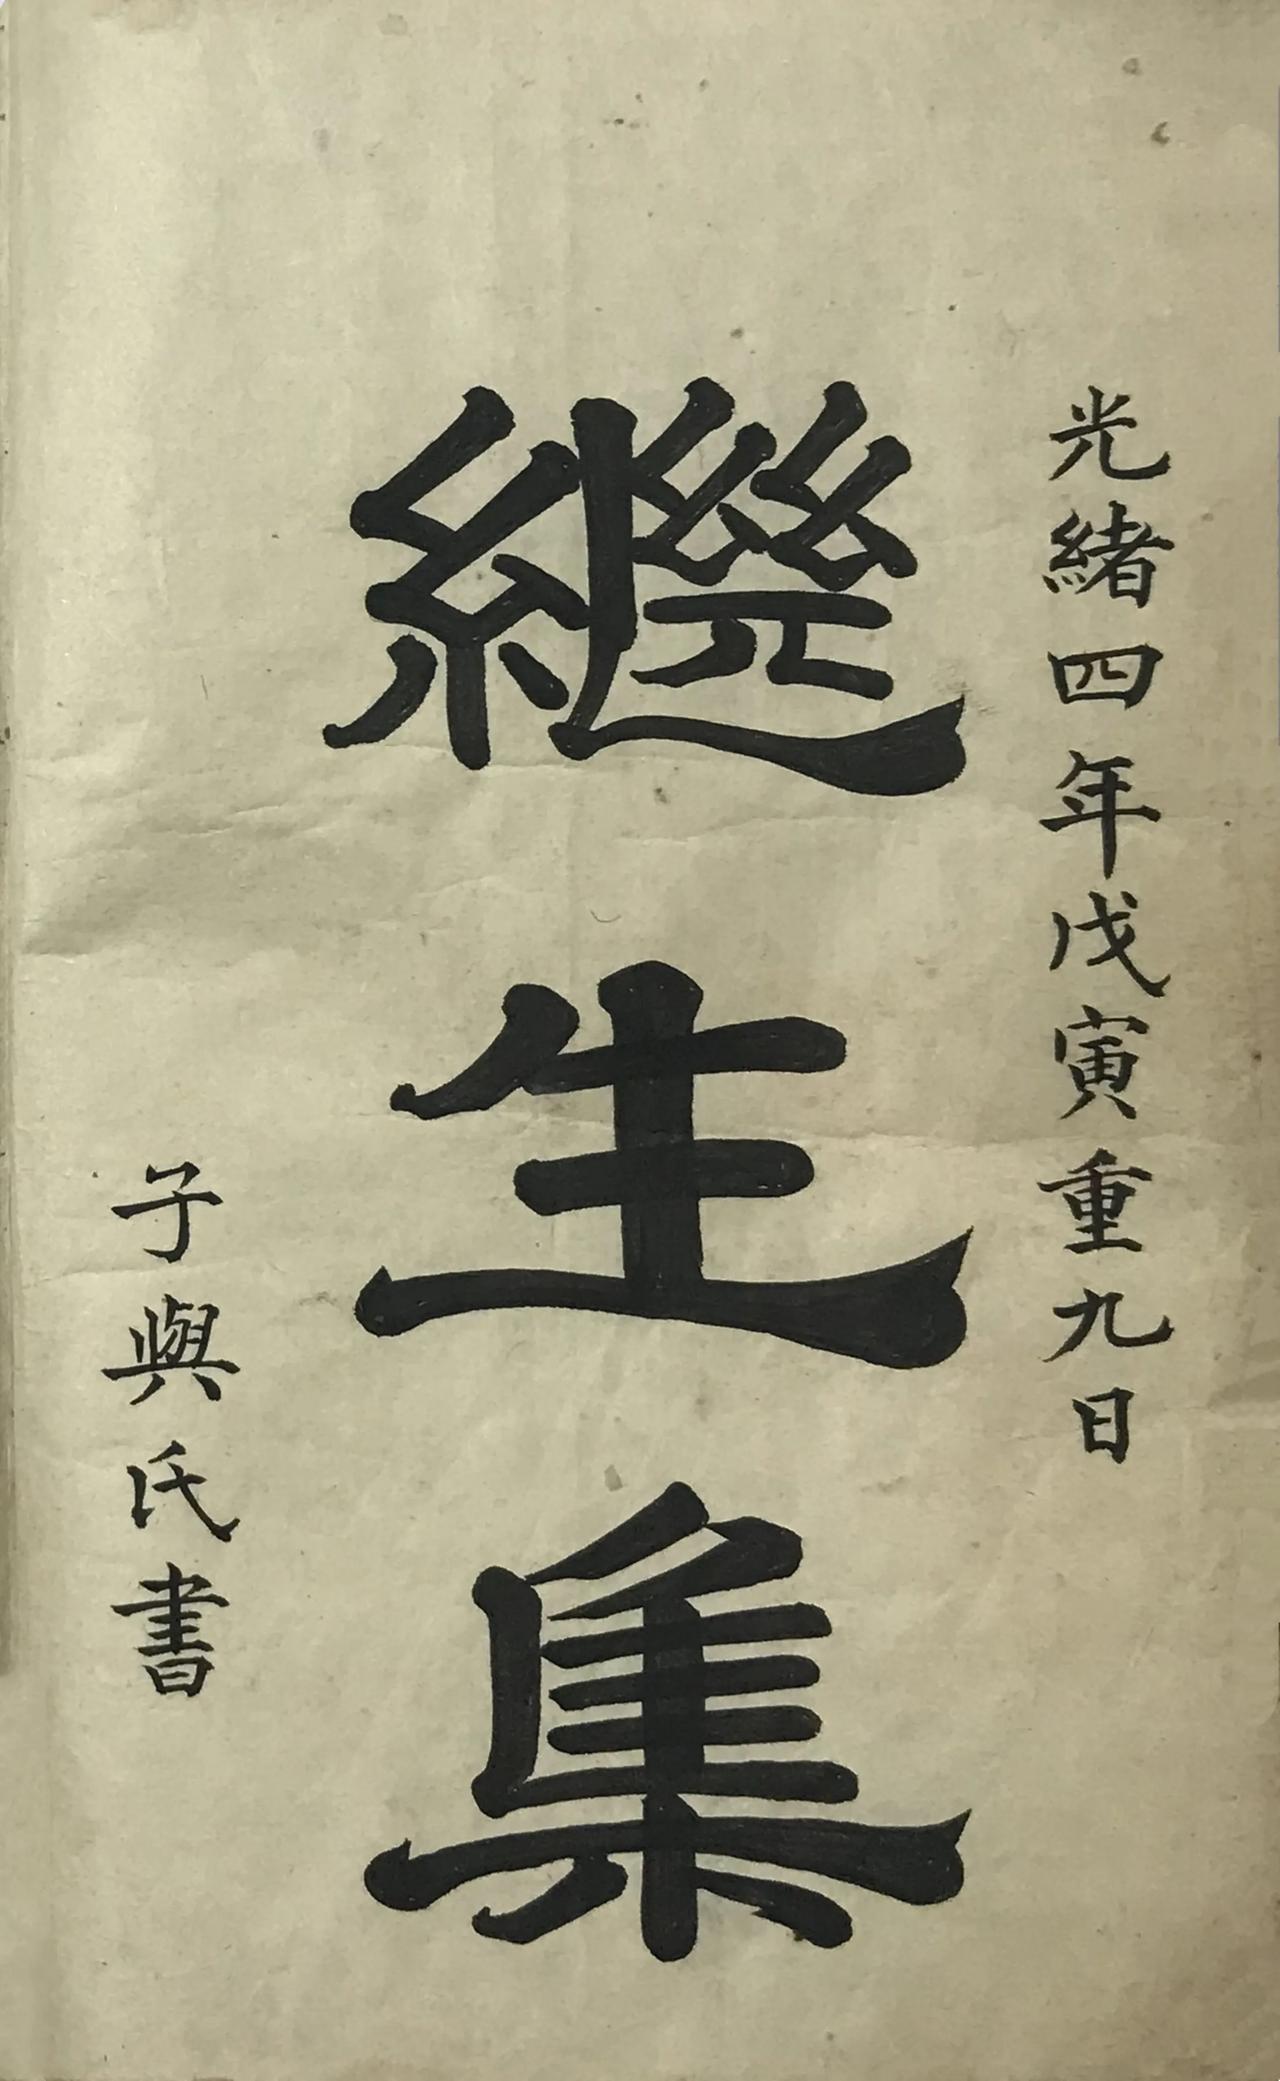 光緒四年戊寅重九日
繼生集
子與氏書